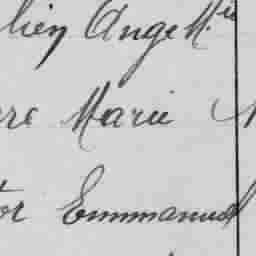 lien Ange M.ie
re Marie
tor Emmanuel